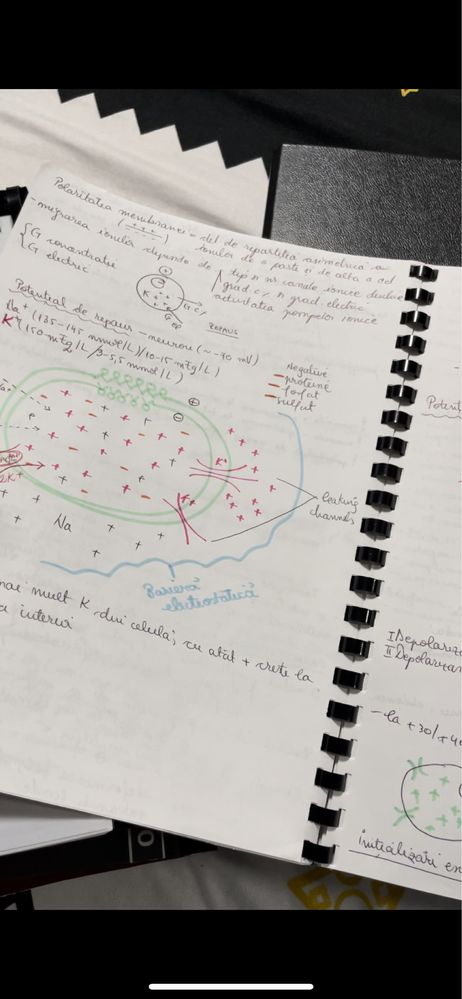 Polaritatea membranei = det de repartiția asimetrică a
ionilor de o parte și de alta a
-migrarea ionilor depinde de
tip și nr canale ionice
grad și grad electric
activitatea pompelor ionice
G concentrație
G electric
K
REPAUS
Potențial de repaus - neuroni (~ -70 mV)
Na + (135-145 mmol/L)(10-15 /L)
K+ (150 /L /3-5,5 mmol/L)
Negative
proteine
fosfat
sulfat
K+
K+
2K+
leaking
channels
Na
Barieră
electrostatică
mai mult K din celulă, cu atât + crește la
interior
Potenț
I Depolariz
II Depolarizar
-la +30/+4
inițializări en